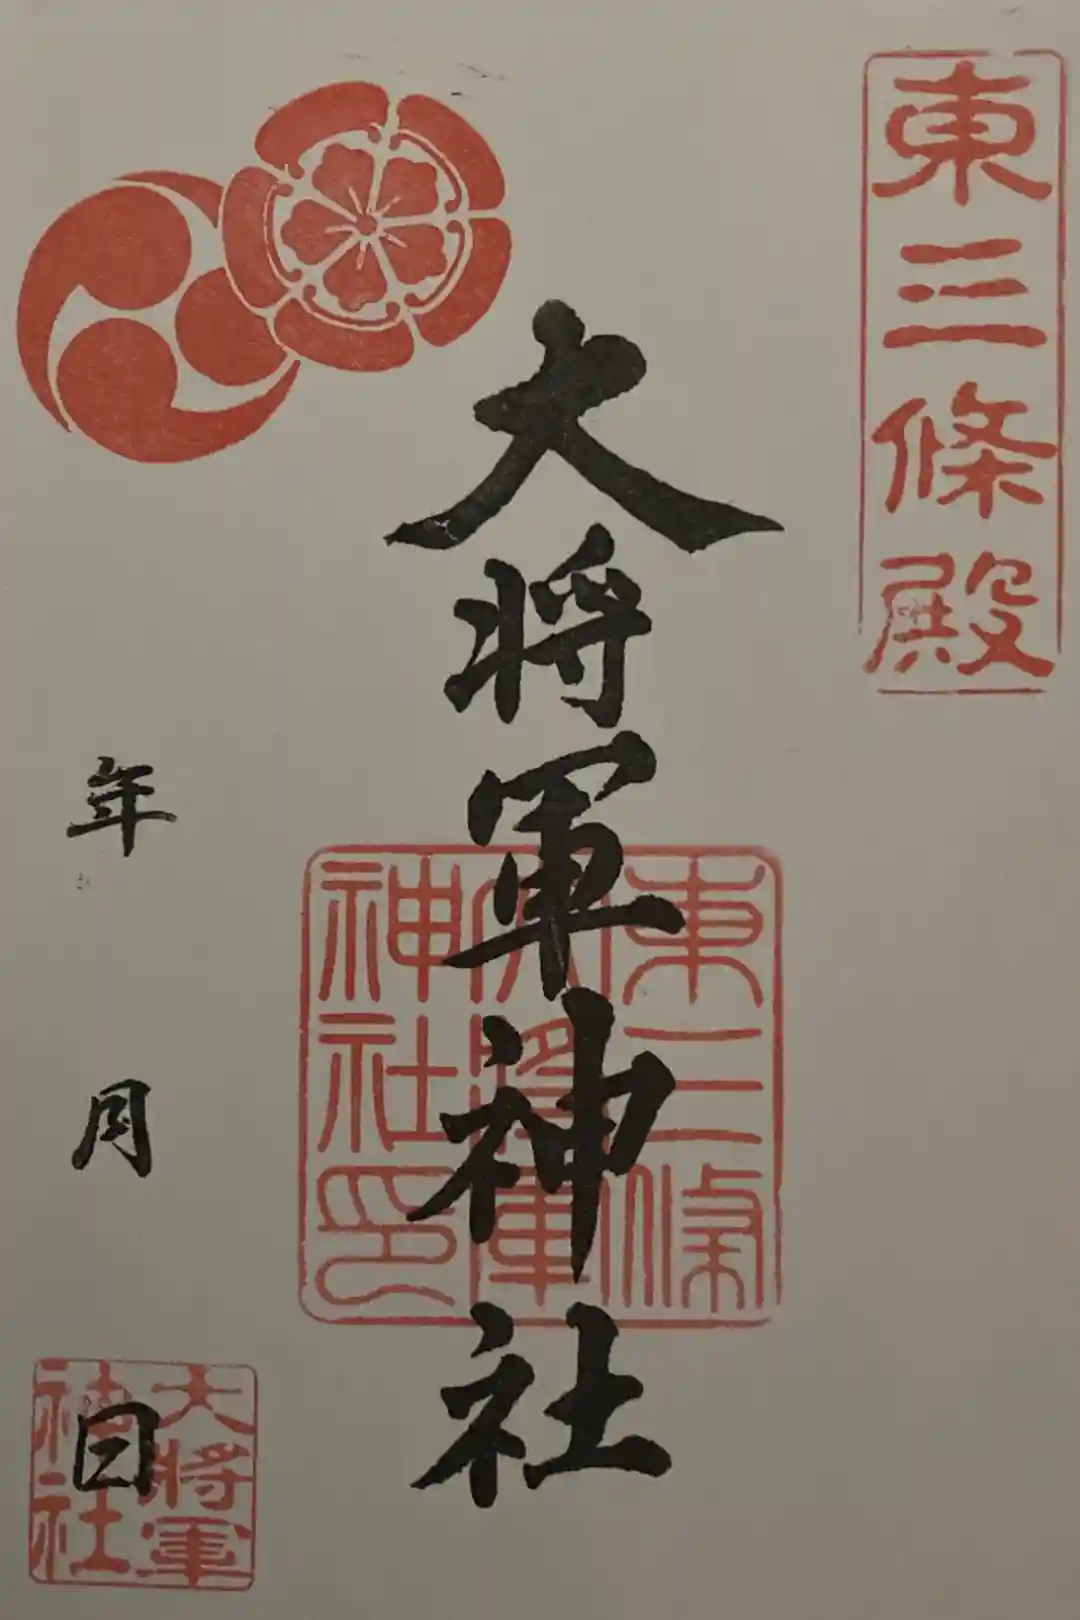 東三條殿
大将軍神社
東三條
大將軍
神社印
年 月 日
大將軍
神社